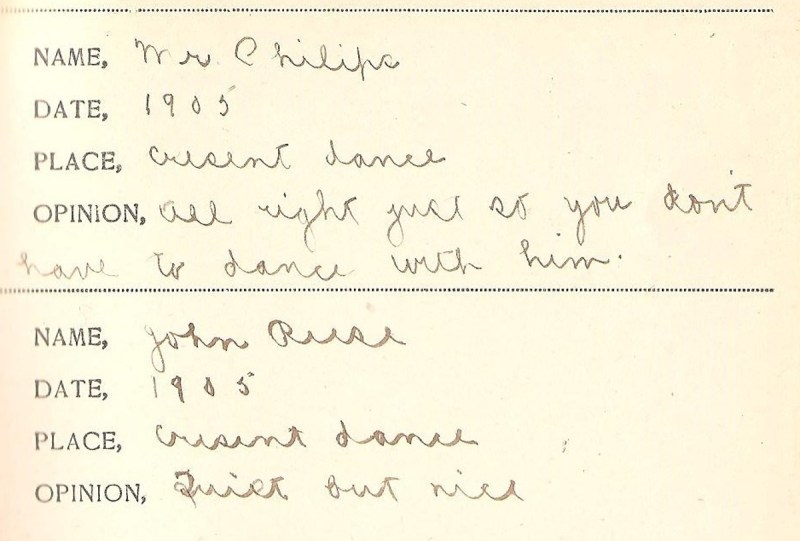 NAME, Mr Philips
DATE, 1905
PLACE, Cresent dance
OPINION, all right just so you don't
have to dance with him.
NAME, John Reese
DATE, 1905
PLACE, Cresent dance
OPINION, Quiet but nice